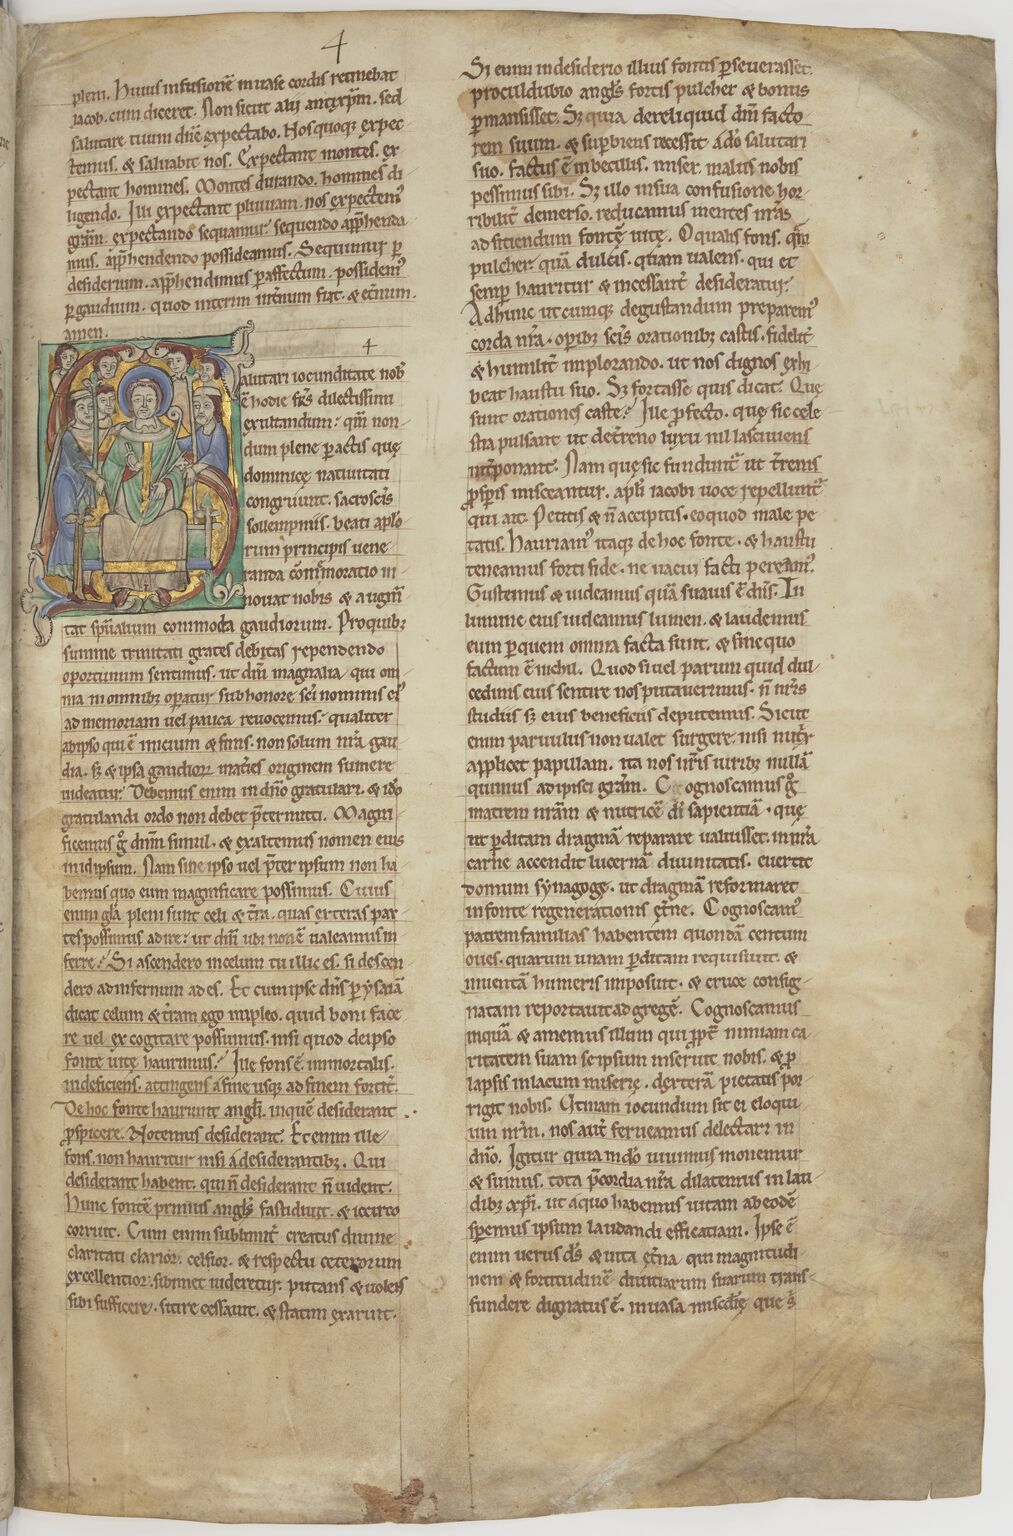 4
plem. Huius infusionē in uase cordis retinebat
iacob. cum diceret. Non sicut alij antixp̄m. sed
salutare tuum dn̄e expectabo. Nos quoq; expec
temus. & saluabit nos. Expectant montes. ex
pectant homines. Montes durando. homines di
ligendo. Illi expectant pluuiam. nos expectem᾽
grām. expectando sequamur. sequendo app̄henda
mus. app̄hendendo possideamus. Sequimur p̱
desiderium. app̄hendimus p̱ affectum. possidem᾽
p̱ gaudium. quod interim int̄num fiat. & et̄num.
amen.
4
Salutari iocunditate nob᾽
ē hodie frs̄ dilectissimi
exultandum. qm̄ non
dum plene p̱actis quę
dominicę natiuitati
congruunt. sacrosc̄is
sollempniis. beati aplo̅
rum principis uene
randa cōm̄emoratio in
nouat nobis & augm̄
tat spūalium commoda gaudiorum. Pro quib;
summe trinitati grates debitas rependendo
oportunum sentimus. ut dn̄i magnalia. qui om
nia in omnib; op̱atur sub honore sc̄i nominis ei᾽
ad memoriam uel pauca reuocemus. qualiter
ab ipso qui ē inicium & finis. non solum nr̄a gau
dia. s; & ipsa gaudiorꝝ mat̄ies originem sumere
uideatur. Debemus enim in dn̄o gratulari. & id̄o
gratulandi ordo non debet p̄termitti. Magni
ficemus g̊ dn̄m simul. & exaltemus nomen eius
in id ipsum. Nam sine ipso uel p̄ter ipsum non ha
bemus quo eum magnificare possimus. Cuius
enim gl̄a pleni sunt celi & t̄ra. quas exteras par
tes possumus adire. ut dn̄i ubi non ē ualeamus in
ferre? Si ascendero in celum tu illic es. si descen
dero ad infernum ades. Et cum ipse dn̄s p̱ ysaiā
dicat celum & t̄ram ego impleo. quid boni face
re uel excogitare possumus. nisi quod de ipso
fonte uitę haurimus? Ille fons ē immortalis.
indeficiens. attingens a fine usq; ad finem fortit̄.
De hoc fonte hauriunt angl̄i. in quē desiderant
p̱spicere. Notemus desiderant. Etenim ille
fons. non hauritur nisi a desiderantib;. Qui
desiderant habent. qui n̄ desiderant n̄ uident.
Hunc fontē primus angl̄s fastidiuit. & iccirco
corruit. Cum enim sublimit̄ creatus diuine
claritati clarior. celsior. & respectu ceterorum
excellentior. sibimet uideretur. putans & uolens
sibi sufficere. sitire cessauit. & statim exaruit.
Si enim in desiderio illius fontis p̱seuerasset.
proculdubio angl̄s fortis pulcher & bonus
p̱mansisset. S; quia dereliquid dn̄m facto
rem suum. & sup̱biens recessit a dō salutari
suo. factus ē inbecillis. miser. malus nobis
pessimus sibi. S; illo in sua confusione hor
ribilit̄ demerso. reducamus mentes nr̄as
ad sitiendum fontē uitę. O qualis fons. quā
pulcher. quā dulcis. quam ualens. qui et
semp̱ hauritur & incessant̄ desideratur.
Ad hunc utcumque degustandum preparem᾽
corda nr̄a. op̱ib; sc̄is orationib; castis. fidelit̄
& humilit̄ implorando. ut nos dignos exhi
beat haustu suo. S; fortasse quis dicat. Que
sunt orationes caste? Ille p̱fecto. quę sic cęle
stia pulsant ut de t̄reno luxu nil lasciuiens
int̄ponant. Nam quę sic fundunt᷑ ut t̄renis
p̱sp̱is misceantur. apl̄i iacobi uoce repellunt᷑
qui ait. Petitis & n̄ accipitis. eo quod male pe
tatis. Hauriam᾽ itaq; de hoc fonte. & haustū
teneamus forti fide. ne uacui facti peream᾽.
Gustemus & uideamus quā suauis ē dn̄s. In
lumine eius uideamus lumen. & laudemus
eum p̱ quem omnia facta sunt. & sine quo
factum ē nichil. Quod si uel parum quid dul
cedinis eius sentire nos putauerimus. n̄ nr̄is
studiis s; eius beneficiis deputemus. Sicut
enim paruulus non ualet surgere. nisi nut̄x
applicet papillam. ita nos nr̄is uirib; nullā
quimus adipisci grām. Cognoscamus g̊
matrem nr̄am & nutricē dī sapientiā. quę
ut p̱ditam dragmā reparare ualuisset. in nr̄a
carne accendit lucernā diuinitatis. euertit
domum synagogę. ut dragmā reformaret
in fonte regenerationis et̄ne. Cognoscam᾽
patremfamilias habentem quondā centum
oues. quarum unam p̱ditam requisiuit. &
inuentā humeris imposuit. & cruce consig
natam reportauit ad gregē. Cognoscamus
inquā & amemus illum qui pp̱t̄ nimiam ca
ritatem suam seipsum inseruit nobis. & p̱
lapsis in lacum miserię. dexterā pietatis por
rigit nobis. Utinam iocundum sit ei eloqui
um nr̄m. nos aut̄ ferueamus delectari in
dn̄o. Igitur quia in dō uiuimus mouemur
& sumus. tota p̄cordia nr̄a dilatemus in lau
dib; xp̄i. ut a quo habemus uitam ab eodē
sp̱emus ipsum laudandi efficatiam. Ipse ē
enim uerus dš & uita et̄na. qui magnitudi
nem & fortitudinē diuitiarum suarum trans
fundere dignatus ē. in uasa misc̄dię quę s̄